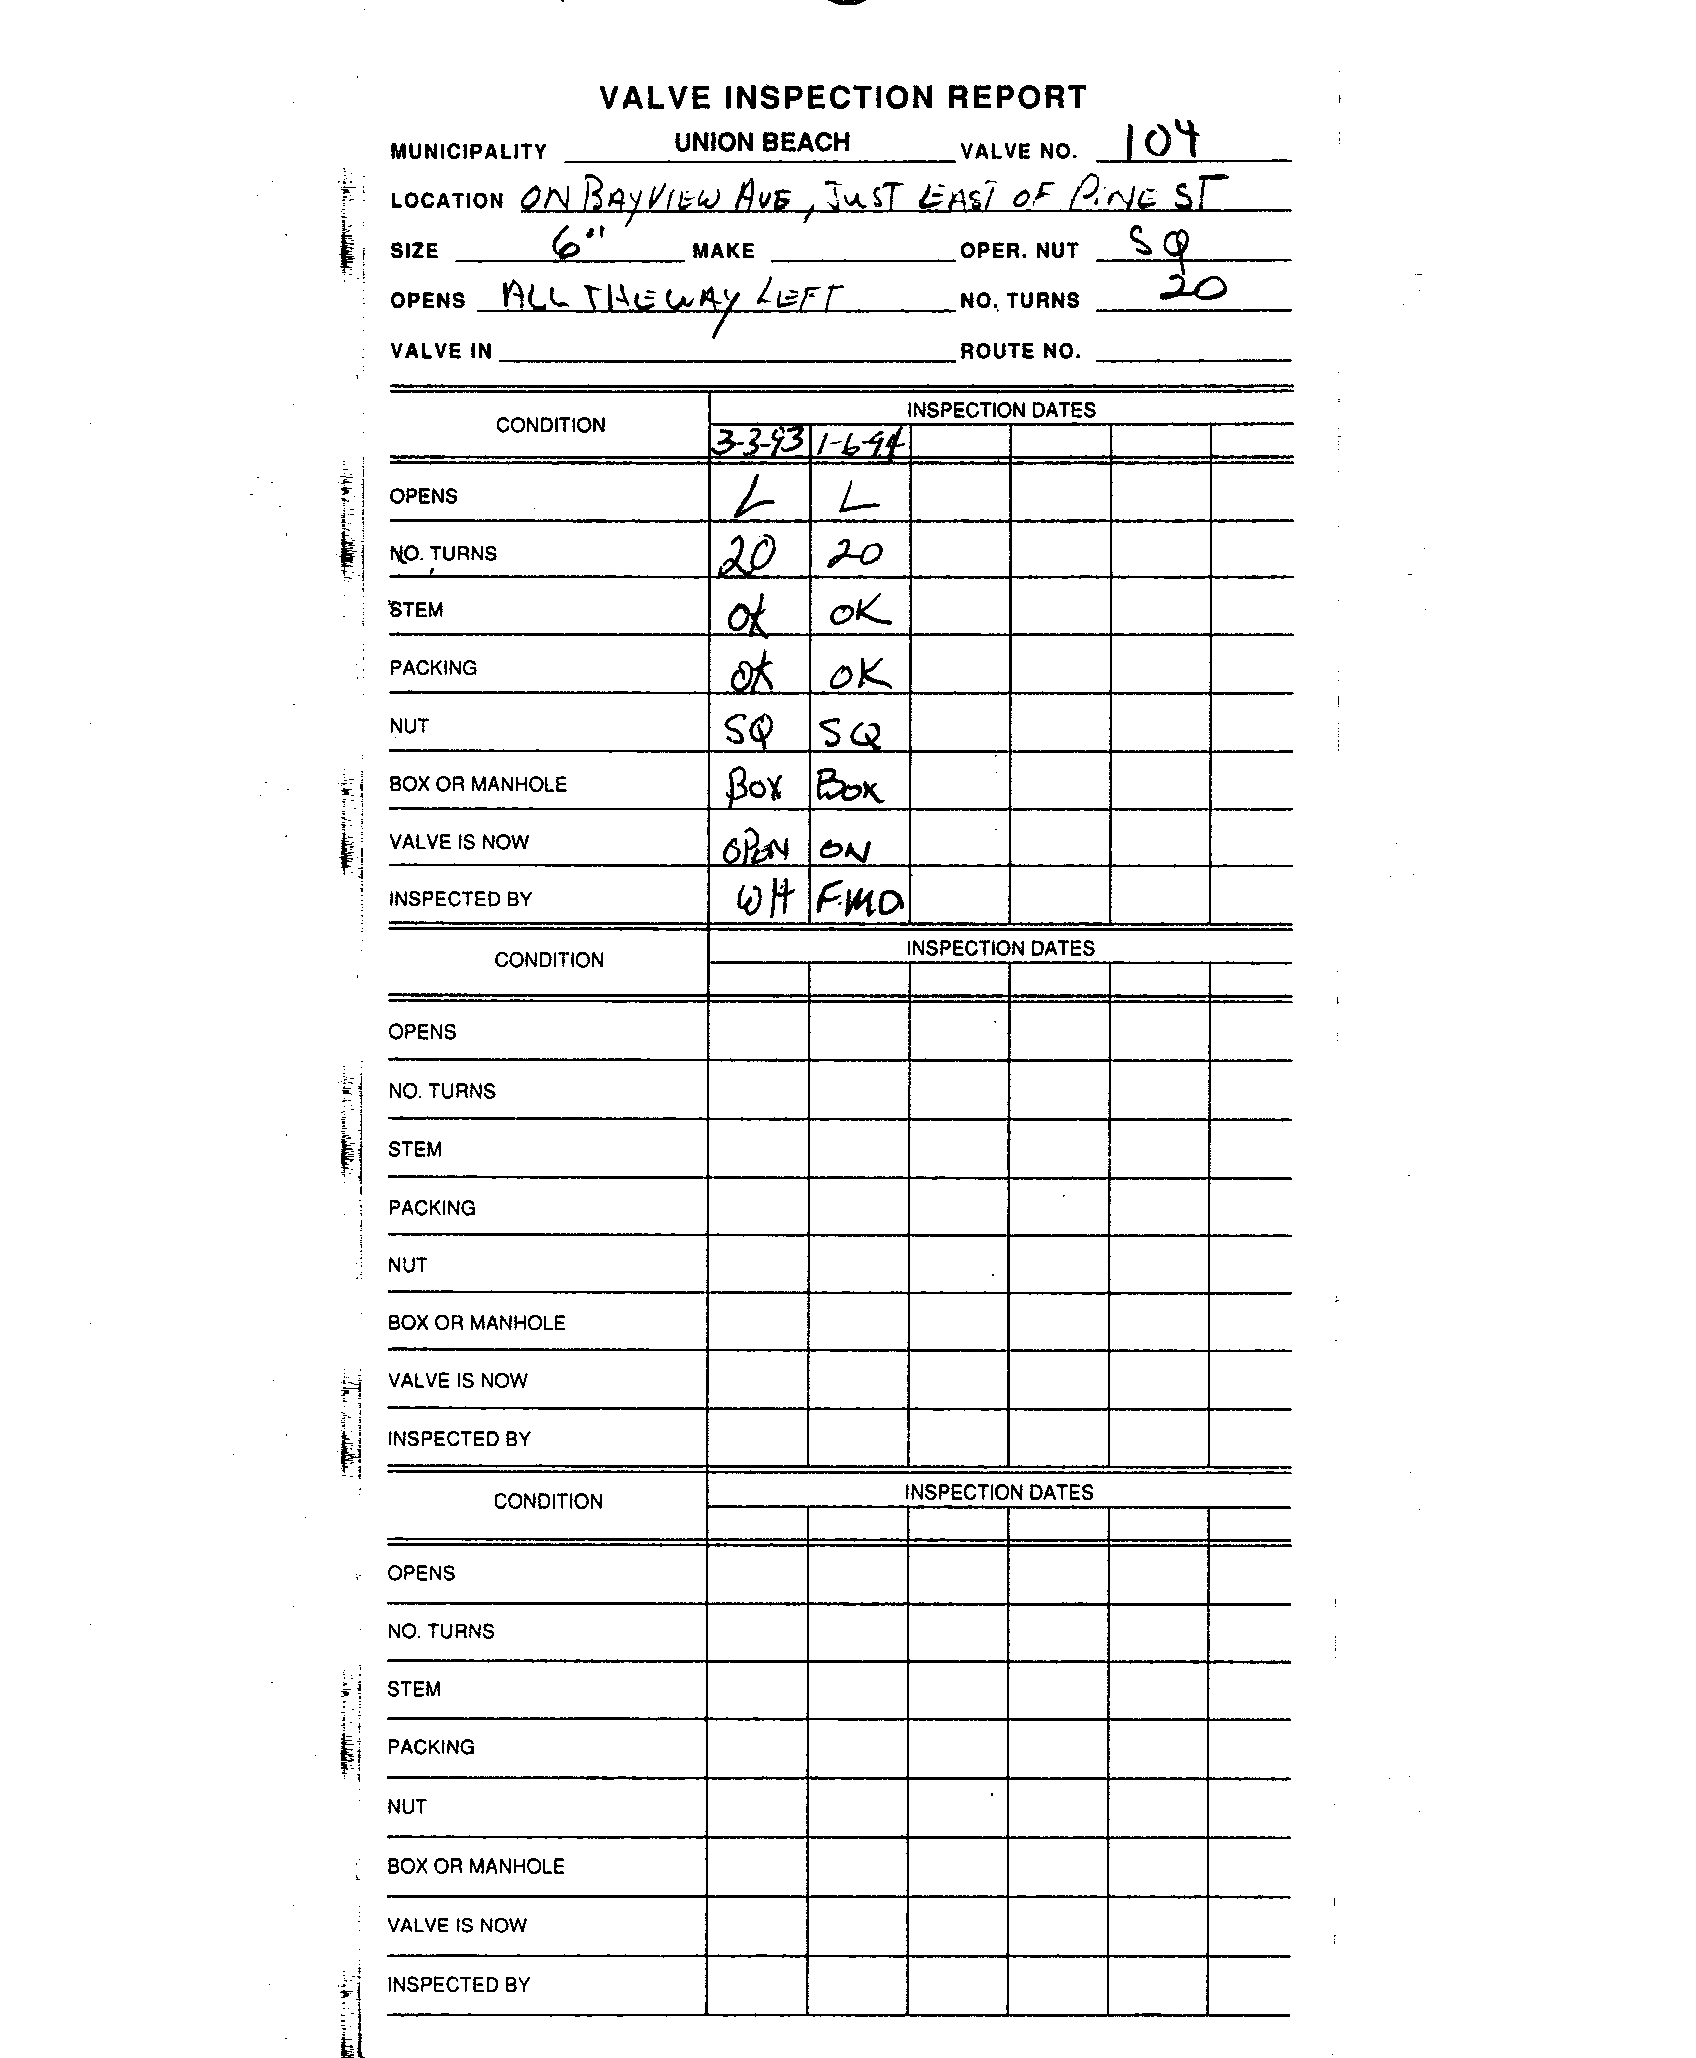 VALVE INSPECTION REPORT
MUNICIPALITY UNION BEACH VALVE NO. 104
LOCATION ON BAYVIEW AVE, JUST EAST OF PINE ST
SIZE 6" MAKE OPER. NUT SQ
OPENS ALL THE WAY LEFT NO. TURNS 20
VALVE IN ROUTE NO.
CONDITION INSPECTION DATES
3-3-93 1-6-94
OPENS L L
NO. TURNS 20 20
STEM OK OK
PACKING OK OK
NUT SQ SQ
BOX OR MANHOLE BOX BOX
VALVE IS NOW OPEN ON
INSPECTED BY WH F.M.D
CONDITION INSPECTION DATES
OPENS
NO. TURNS
STEM
PACKING
NUT
BOX OR MANHOLE
VALVE IS NOW
INSPECTED BY
CONDITION INSPECTION DATES
OPENS
NO. TURNS
STEM
PACKING
NUT
BOX OR MANHOLE
VALVE IS NOW
INSPECTED BY